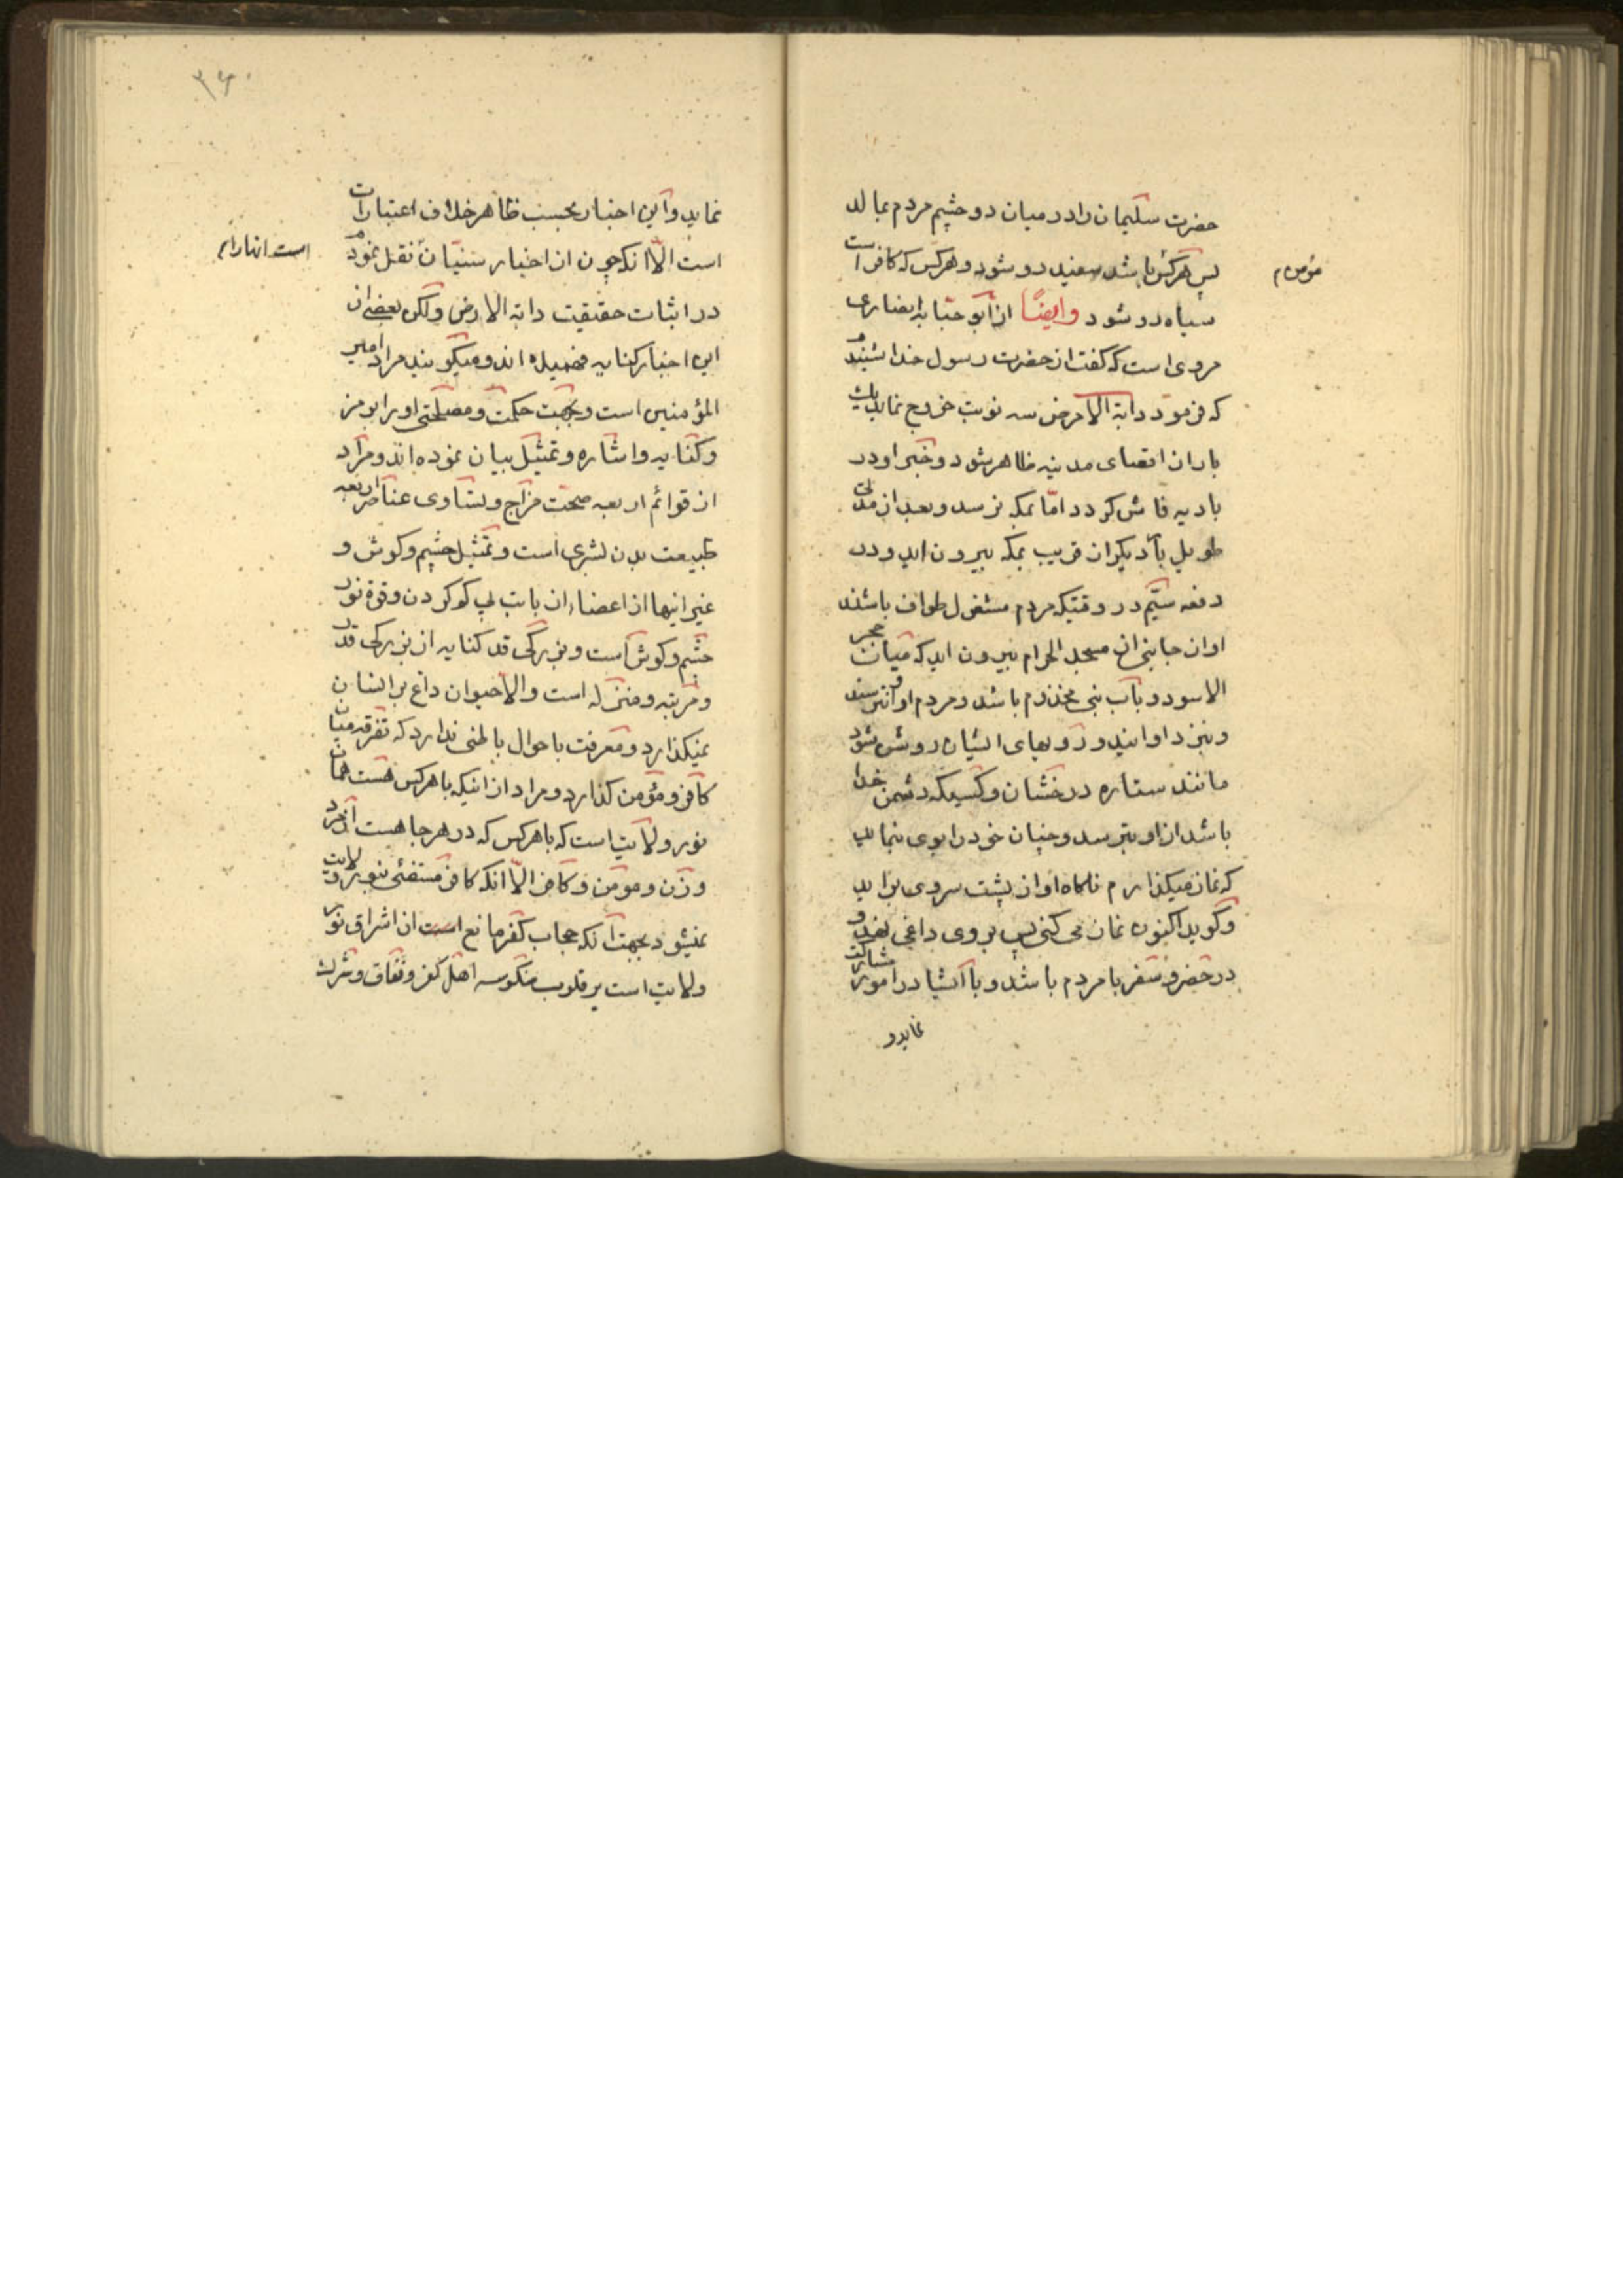 حضرت سلیمان را در میان دو چشم مردم بمالد
پس هرکس باشد سفید رو شود و هرکس که کافر است
مؤمن م
سیاه رو شود وایضًا از ابو حبابه انصاری
مروی است که کفت از حضرت رسول خدا شنیدم
که فرمود دابة الارض سه نوبت خروج نماید یک
بار از اقصای مدینه ظاهر شود و خبر او در
بادیه فاش کردد امّا بمکه نرسد و بعد از مدتی
طویل بار دیکر از قریب بمکه بیرون اید و در
دفعه سیّم در وقتیکه مردم مشغول طواف باشند
او از جانبی از مسجد الحرام بیرون اید که میان حجر
الاسود و باب بنی مخذوم باشد و مردم از او بترسند
و بنزد او ایند و رویهای ایشان روشن شود
مانند ستاره درخشان و کسیکه دشمن خدا
باشد از او بترسد و چنان خود را بوی بنماید
که نماز میکذارم ناکاه او از پشت سر وی براید
و کوید اکنون نماز می کنی پس بر وی داغی نهد و
در حضر و سفر با مردم باشد و با ایشا در امور مشارکت
نماید و
۳۶۰
نماید و این اخبار بحسب ظاهر خلاف اعتبارات
است الّا انکه چون از اخبار سنیّان نقل نمودم
است انها را م
در اثبات حقیقت دابة الارض ولکن بعضی از
این اخبار کنایه فهمیده اند و میکویند مراد امیر
المؤمنین است و بجهت حکمت و مصلحتی او را برمز
و کنایه و اشاره و تمثیل بیان نموده اند و مراد
از قوائم اربعه صحّت مزاج و تساوی عناصر اربعه
طبیعت بدن بشری است و تمثیل چشم و کوش و
غیر اینها از اعضاء از بابت پی کم کردن و قوة نور
چشم و کوش است و بزرکی قد کنایه از بزرکی قدر
و مرتبه و منزله است والّا حیوان داغ بر انسان
نمیکذارد و معرفت باحوال باطنی ندارد که تفرقه میان
کافر و مؤمن کذارد و مراد از اینکه با هرکس هست همان
نور ولایت است که با هرکس که در هرجا هست از مرد
و زن و مومن و کافر الّا انکه کافر مستضئی بنور ولایت
نمیشود بجهت آنکه حجاب کفر مانع است از اشراق نور
ولایت است بر قلوب منکوسه اهل کفر و نفاق و شرک